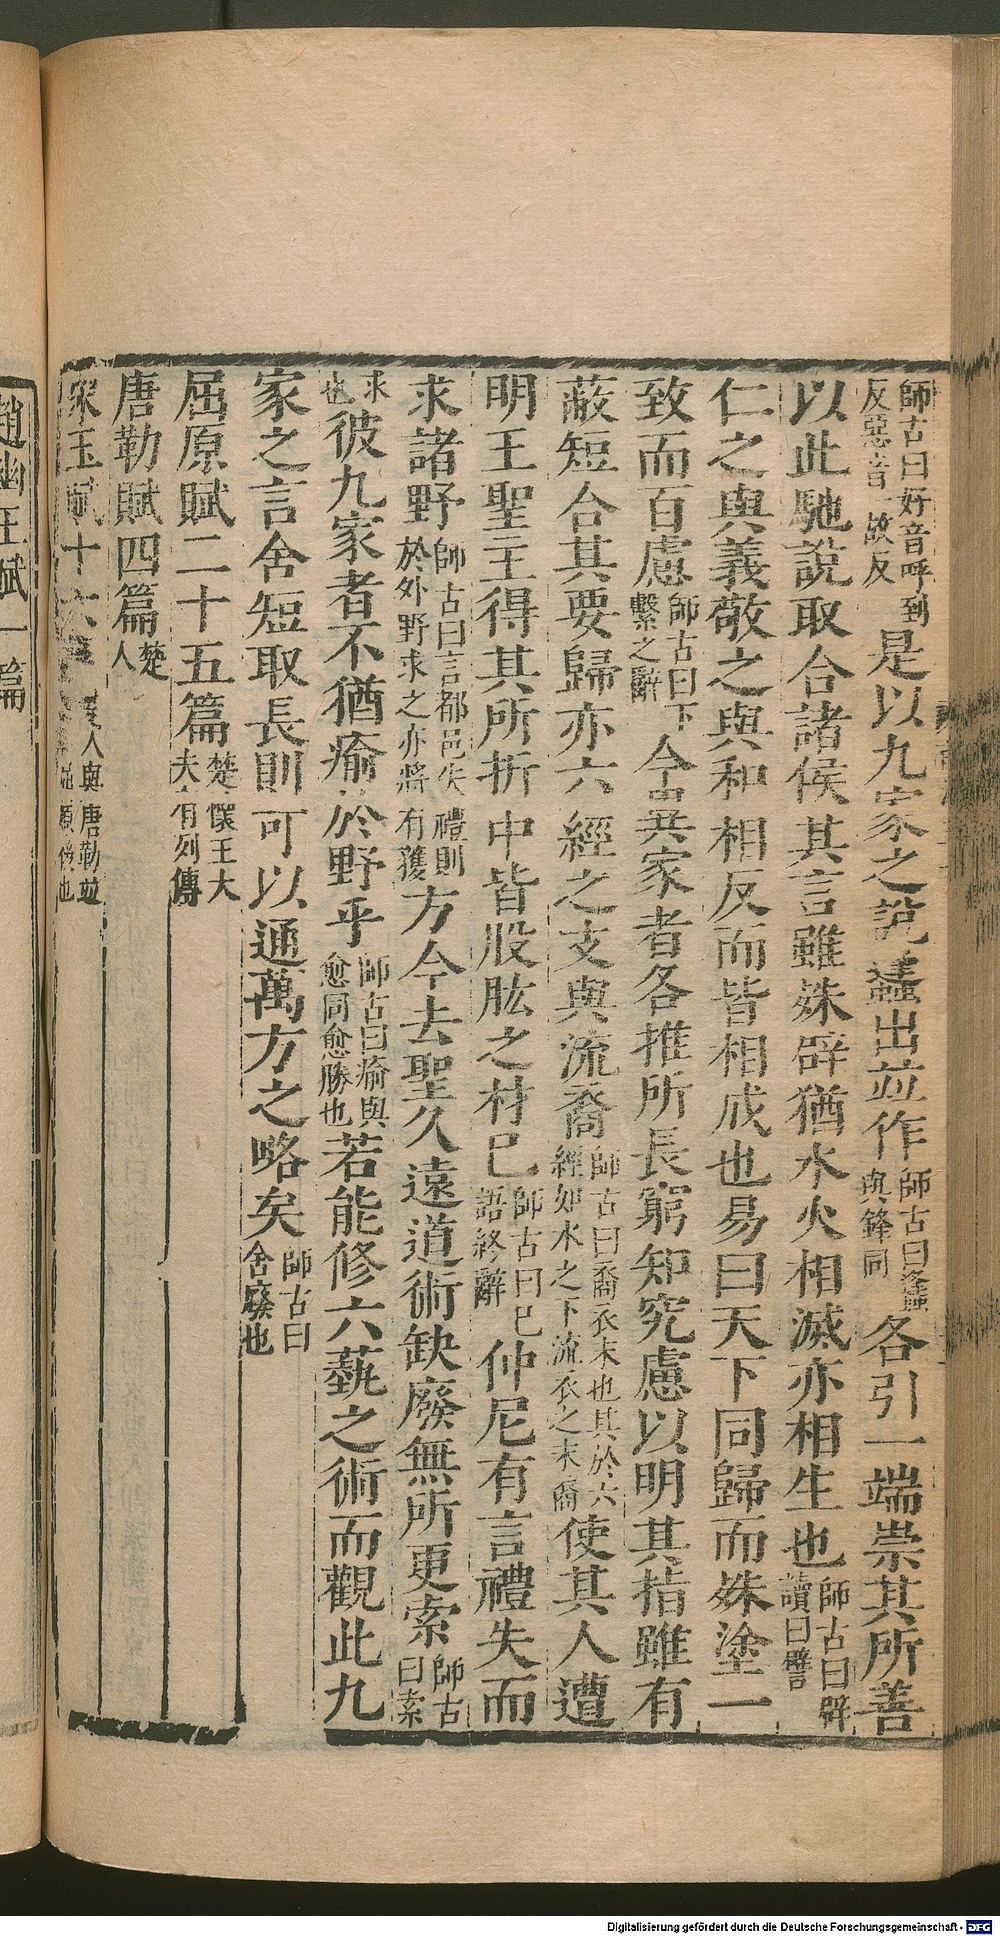 師古曰好音呼到反惡音一故反是以九家之說蠭出並作師古曰蠭與鋒同各引一端崇其所善
以此馳說取合諸侯其言雖殊辟猶水火相滅亦相生也師古曰辟讀曰譬
仁之與義敬之與和相反而皆相成也易曰天下同歸而殊塗一
致而百慮師古曰下繫之辭今異家者各推所長窮知究慮以明其指雖有
蔽短合其要歸亦六經之支與流裔師古曰裔衣末也其於六經如水之下流衣之末裔使其人遭
明王聖主得其所折中皆股肱之材已師古曰已語終辭仲尼有言禮失而
求諸野師古曰言都邑失禮則於外野求之亦將有獲方今去聖久遠道術缺廢無所更索師古曰索
求也彼九家者不猶瘉於野乎師古曰瘉與愈同愈勝也若能修六蓺之術而觀此九
家之言舍短取長則可以通萬方之略矣師古曰舍廢也
屈原賦二十五篇楚懷王大夫有列傳
唐勒賦四篇楚人
宋玉賦十六篇楚人與唐勒並在屈原後也
趙幽王賦一篇
Digitalisierung gefördert durch die Deutsche Forschungsgemeinschaft - DFG